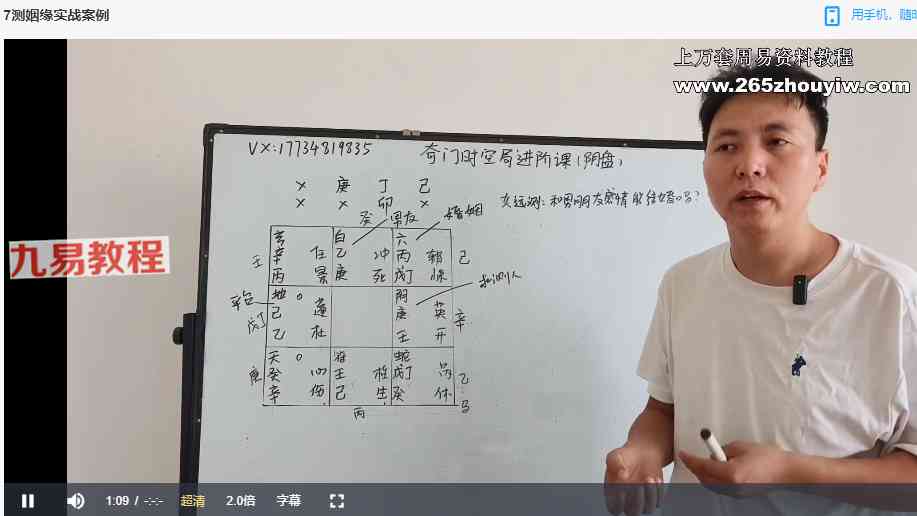 7测姻缘实战案例
用手机，随时
上万套周易资料教程
www.265zhouyiw.com
VX:17734819835
奇门时空局进阶课(阴盘)
× 庚 丁 己
× × 卯 ×
癸 男友 婚姻
女远测：和男朋友感情能结婚吗？
九易教程
玄 白 六
壬 辛 任 乙 冲 丙 辅 己
丙 景 庚 死 戊丁 惊
地 ○ 阴 求测人
戊丁 己 蓬 庚 英 辛
乙 杜 壬 开
天 ○ 符 蛇
庚 癸 心 壬 柱 戊丁 芮 乙
辛 伤 己 生 癸 休 马
丙
1:09 / -:-- 超清 2.0倍 字幕